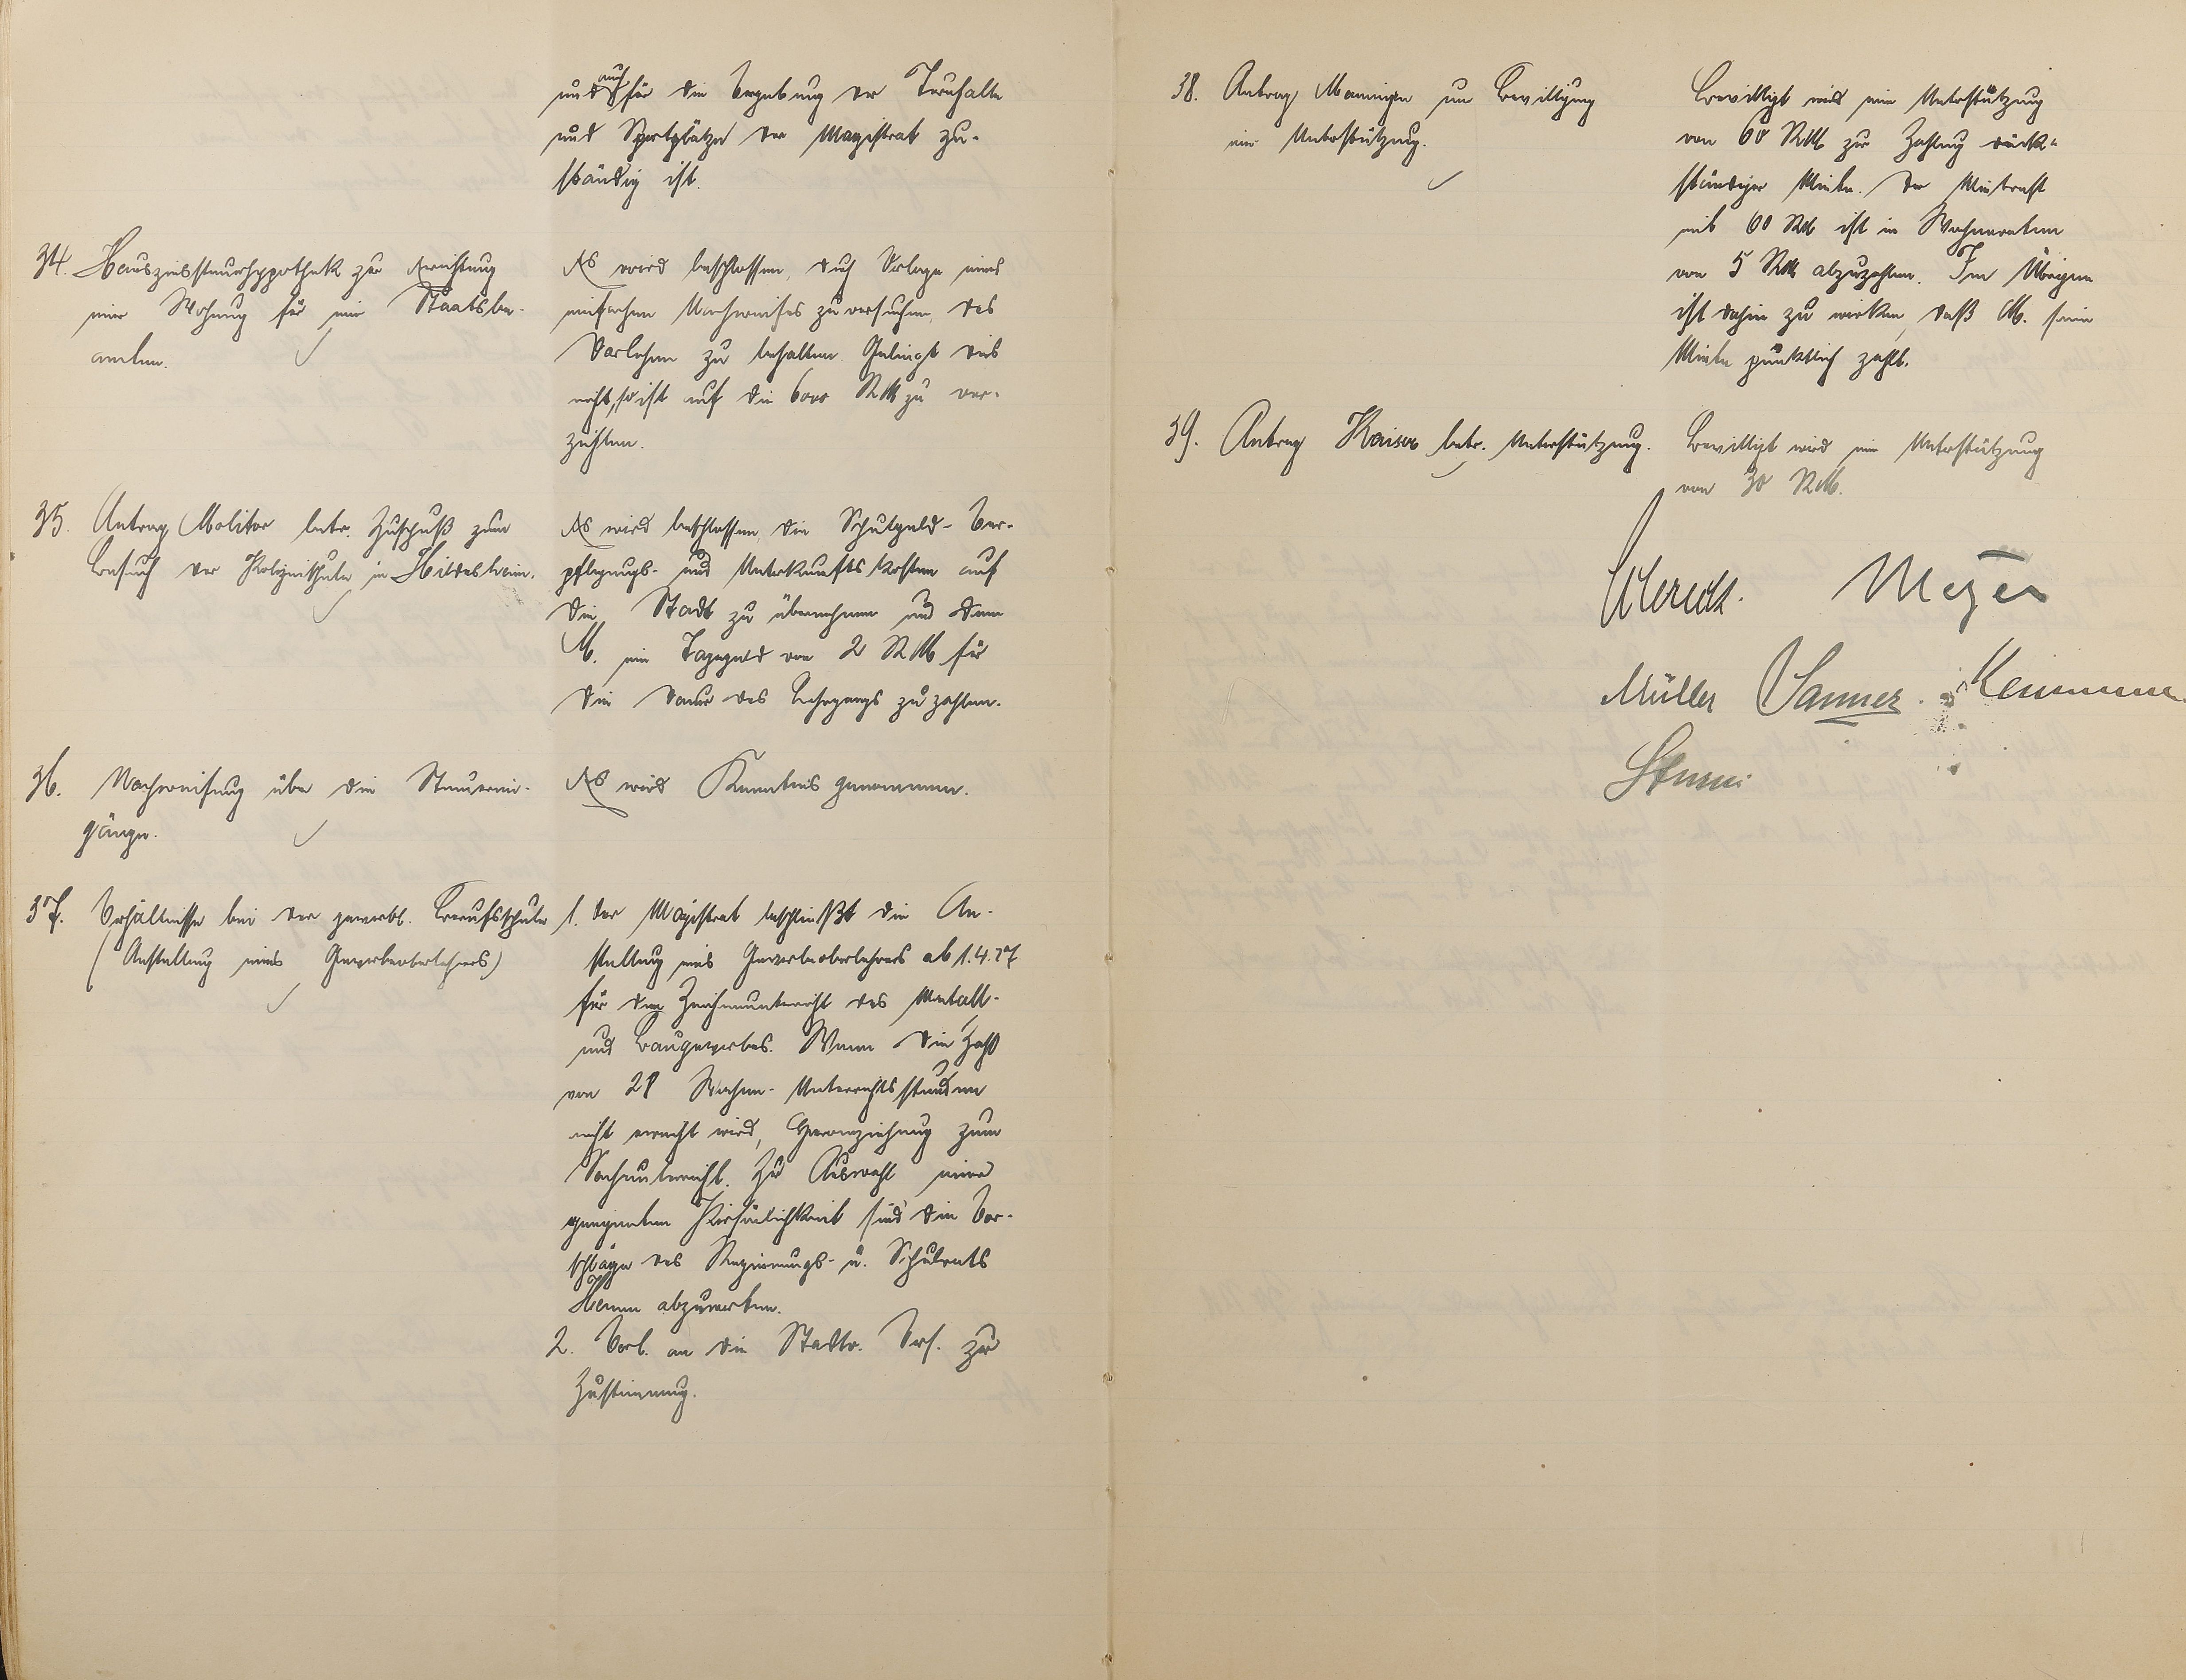 und auch für die Vergebung der Turnhalle
und Sportplätze der Magistrat zu-
ständig ist.
34. Hauszinssteuerhypothek zur Errichtung
einer Wohnung für einen Staatsbe-
amten.
Es wird beschlossen, durch Vorlage eines
einfachen Nachweises zu versuchen, das
Darlehen zu behalten. Gelingt dies
nicht, so ist auf die 6000 RM zu ver-
zichten.
35. Antrag Molitor betr. Zuschuß zum
Besuch der Polizeischule in Hildesheim.
Es wird beschlossen, die Schulgeld- Ver-
pflegungs- und Unterkunftskosten auf
die Stadt zu übernehmen und dem
M. ein Tagegeld von 2 RM für
die Dauer des Lehrgangs zu zahlen.
36. Nachweisung über die Steuerein-
gänge.
Es wird Kenntnis genommen.
37. Verhältnisse bei der gewerbl. Berufsschule
(Anstellung eines Gewerbeoberlehrers)
1. Der Magistrat beschließt die An-
stellung eines Gewerbeoberlehrers ab 1.4.27
für den Zeichenunterricht des Metall-
und Baugewerbes. Wenn die Zahl
von 28 Wochen- Unterrichtsstunden
nicht erreicht wird, Heranziehung zum
Fachunterricht. Zur Auswahl einer
geeigneten Persönlichkeit sind die Vor-
schläge des Regierungs- u. Schulrats
abzuwarten.
2. Vorl. an die Stadtv. Vers. zur
Zustimmung.
38. Antrag Menningen um Bewilligung
einer Unterstützung.
Bewilligt wird eine Unterstützung
von 60 RM zur Zahlung rück-
ständiger Miete. Der Mietrest
mit 60 RM ist in Wochenraten
von 5 RM abzuzahlen. Im Übrigen
ist dahin zu wirken, daß M. seine
Miete pünktlich zahlt.
39. Antrag Kaiser betr. Unterstützung.
Bewilligt wird eine Unterstützung
von 30 RM.
Meyer
Müller Sanner